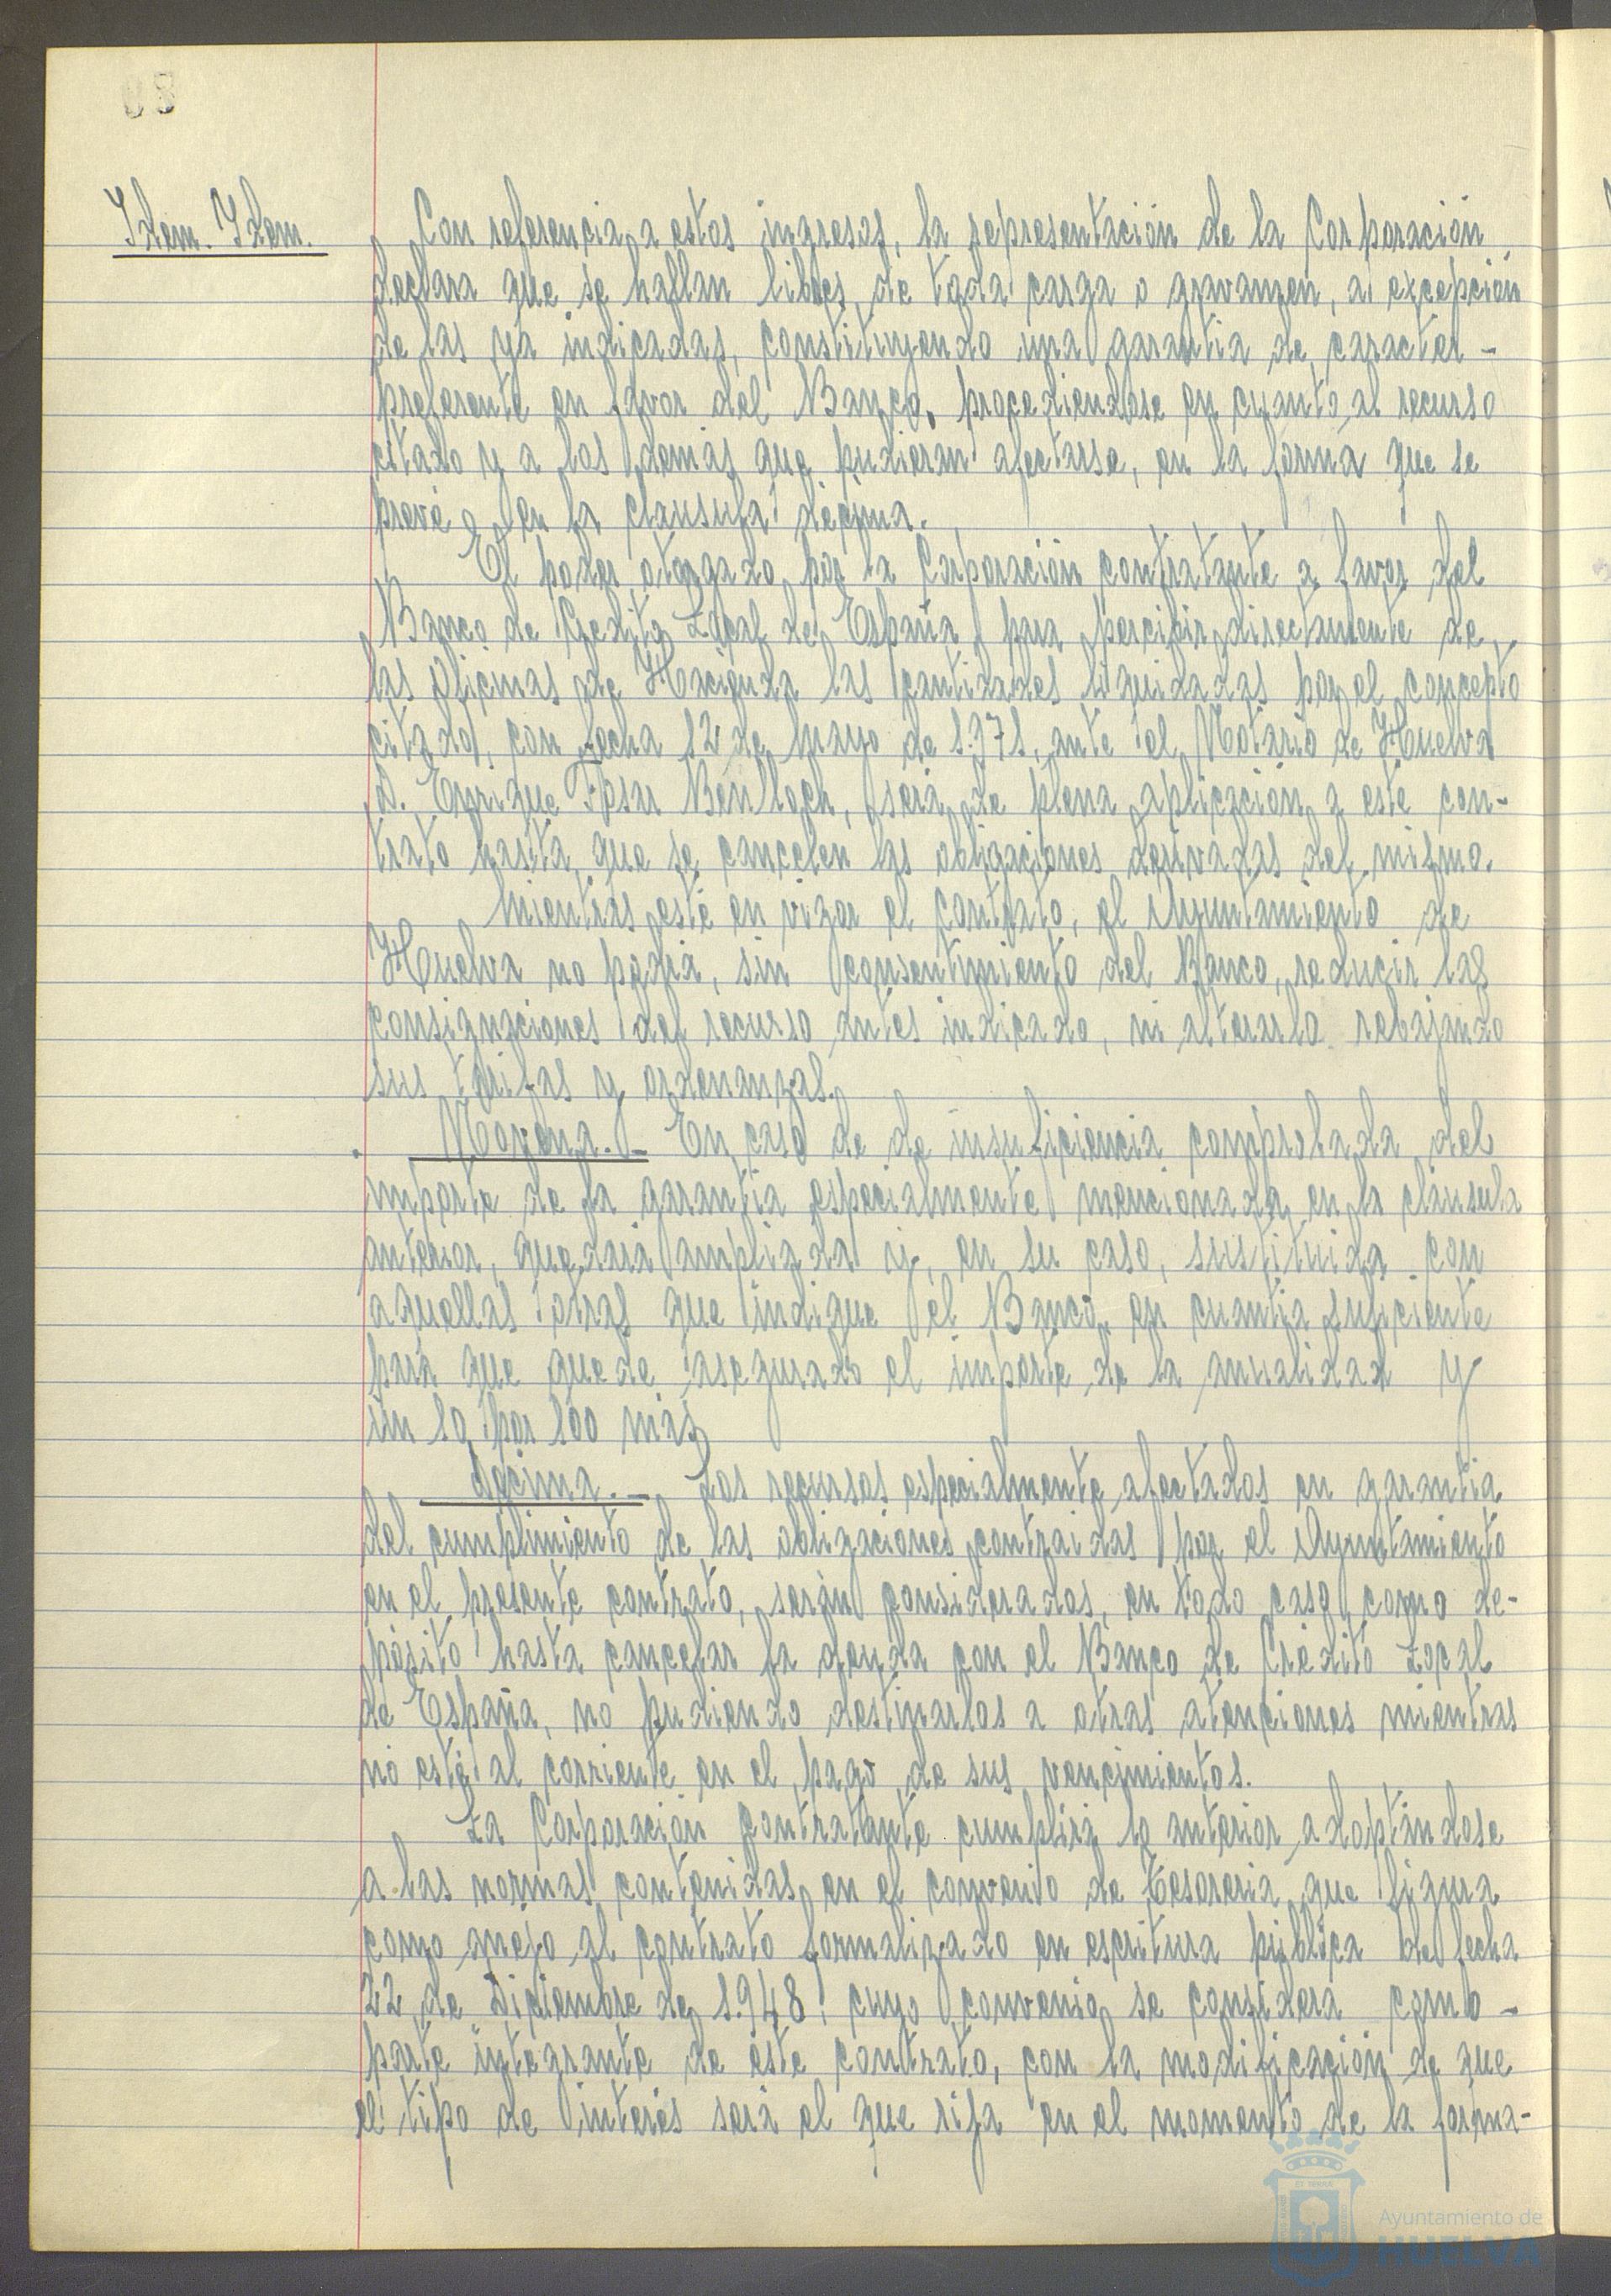 Idem. Idem.
Con referencia a estos ingresos, la representación de la Corporación
declara que se hallan libres de toda carga o gravamen, a excepción
de las ya indicadas, constituyendo una garantía de caracter -
preferente en favor del Banco, procediendose en cuanto al recurso
citado y a los demás que pudieran afectarse, en la forma que se
prevé en la clausula décima.
El poder otorgado por la Corporación contratante a favor del
Banco de Credito Local de España para percibir directamente de
las oficinas de Hacienda las cantidades liquidadas por el concepto
citado, con fecha 12 de mayo de 1.971, ante el Notario de Huelva
D. Enrique Fosar Benlloch, será de plena aplicación a este con-
trato hasta que se cancelen las obligaciones derivadas del mismo.
Mientras esté en vigor el contrato, el Ayuntamiento de
Huelva no podrá, sin consentimiento del Banco, reducir las
consignaciones del recurso antes indicado, ni alterarlo rebajando
sus tarifas y ordenanzas.
Novena.- En caso de de insuficiencia comprobada del
importe de la garantía especialmente mencionada en la clausula
anterior, quedará ampliada y, en su caso, sustituida con
aquellas otras que indique el Banco, en cuantía suficiente
para que quede asegurado el importe de la anualidad y
un 10 por 100 más
décima.- Los recursos especialmente afectados en garantía
del cumplimiento de las obligaciones contraidas por el Ayuntamiento
en el presente contrato, serán considerados, en todo caso, como de-
pósito hasta cancelar la deuda con el Banco de Crédito Local
de España, no pudiendo destinarlos a otras atenciones mientras
no esté al corriente en el pago de sus vencimientos.
La Corporación contratante cumplirá lo anterior adoptándose
a las normas contenidas en el convenio de Tesorería que figura
como anejo al contrato formalizado en escritura pública de fecha
22 de Diciembre de 1.948, cuyo convenio se considera como -
parte integrante de este contrato, con la modificación de que
el tipo de interés será el que rija en el momento de la forma-
Ayuntamiento de
HUELVA